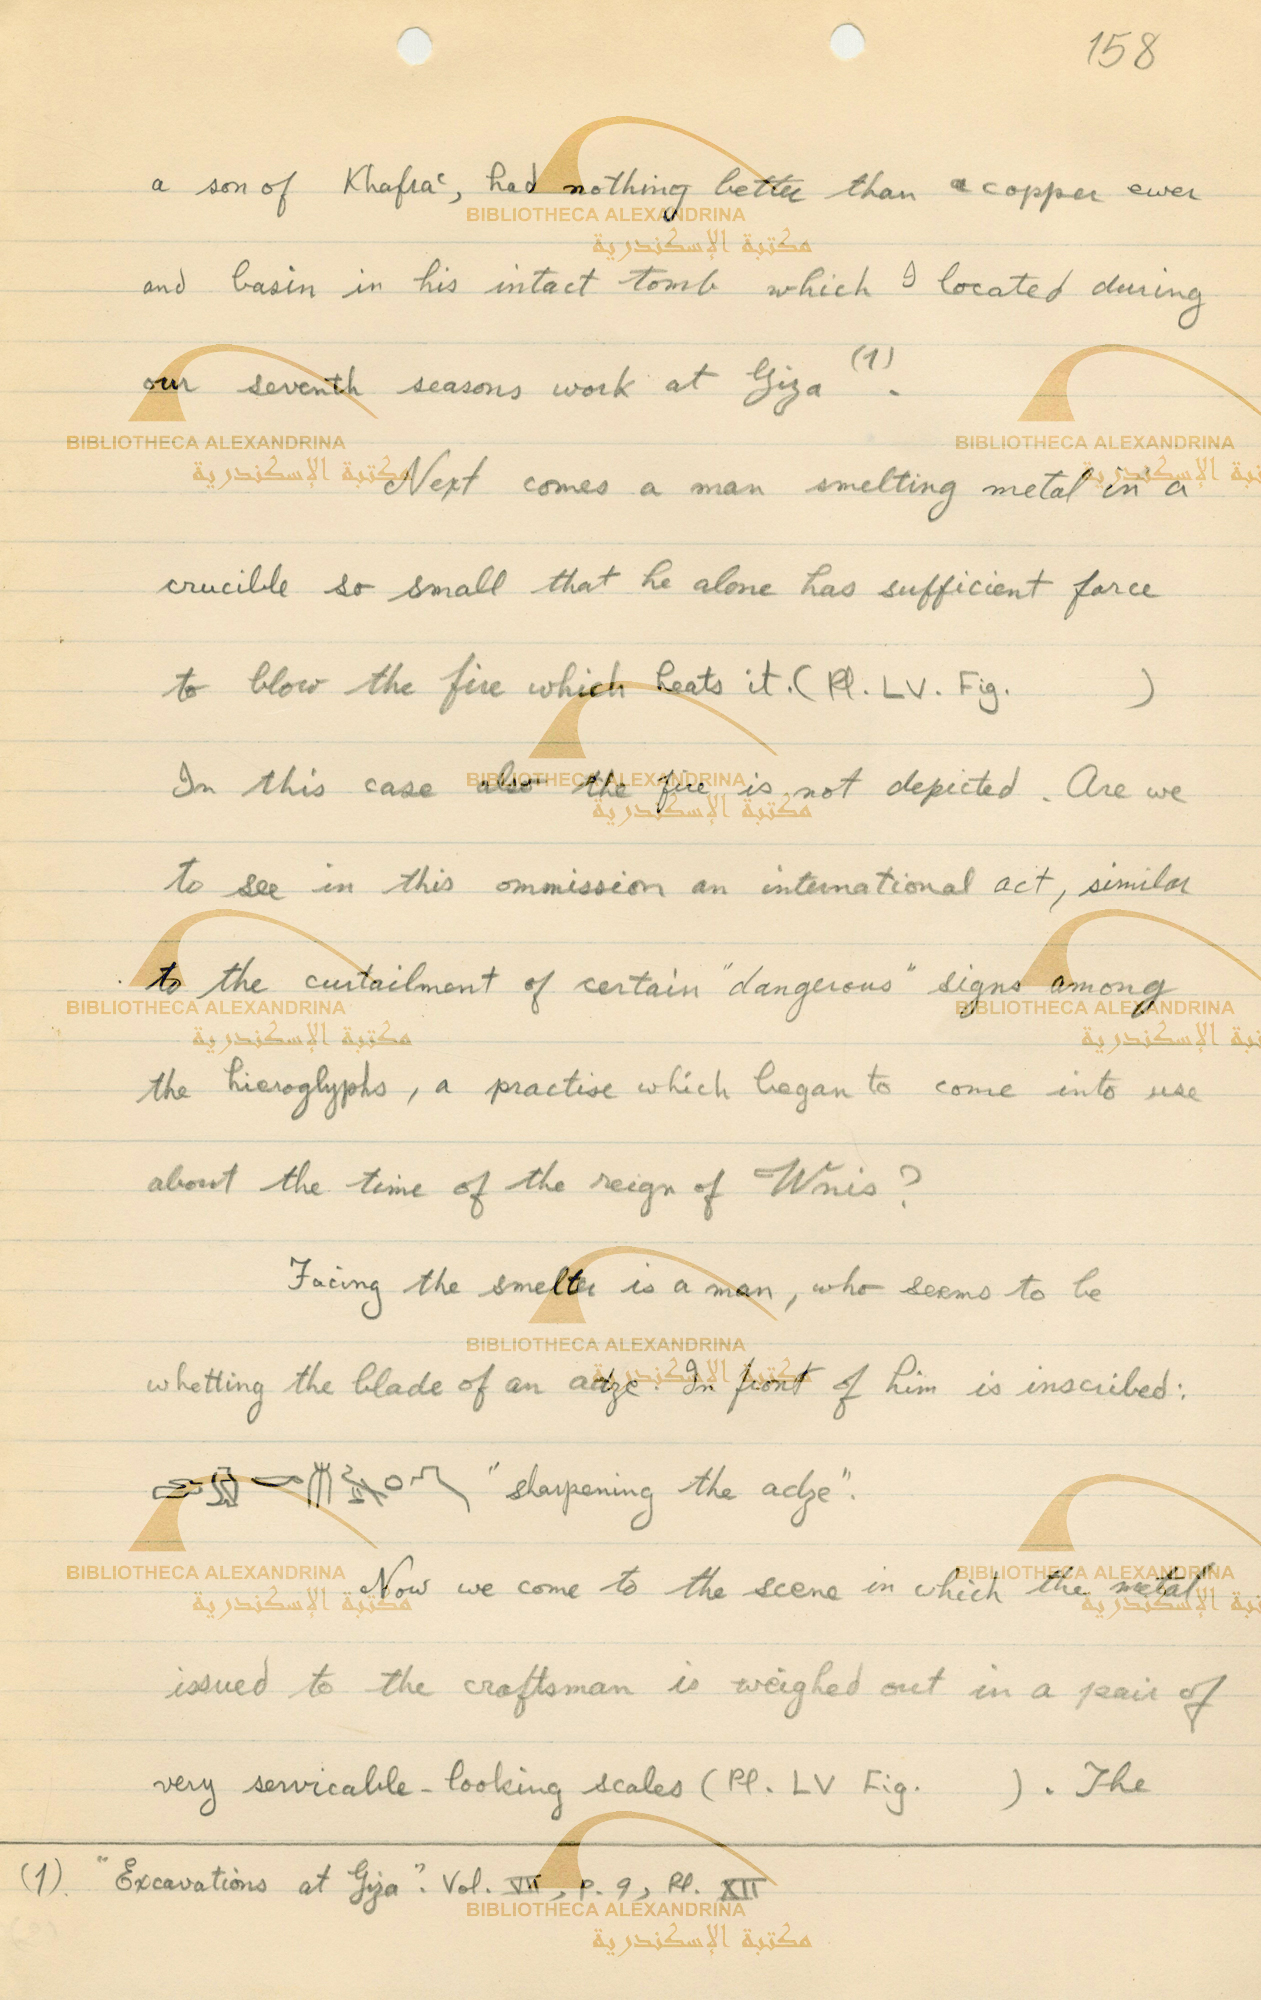 158
a son of Khafraʿ, had nothing better than a copper ewer
and basin in his intact tomb which I located during
our seventh seasons work at Giza (1).
Next comes a man smelting metal in a
crucible so small that he alone has sufficient force
to blow the fire which heats it. (Pl. LV. Fig. )
In this case also the fire is not depicted. Are we
to see in this ommission an international act, similar
to the curtailment of certain "dangerous" signs among
the hieroglyphs, a practise which began to come into use
about the time of the reign of Wnis?
Facing the smelter is a man, who seems to be
whetting the blade of an adze. In front of him is inscribed:
"sharpening the adze".
Now we come to the scene in which the metal
issued to the craftsman is weighed out in a pair of
very servicable-looking scales (Pl. LV Fig. ). The
(1). "Excavations at Giza". Vol. VII, P. 9, Pl. XII
BIBLIOTHECA ALEXANDRINA
مكتبة الإسكندرية